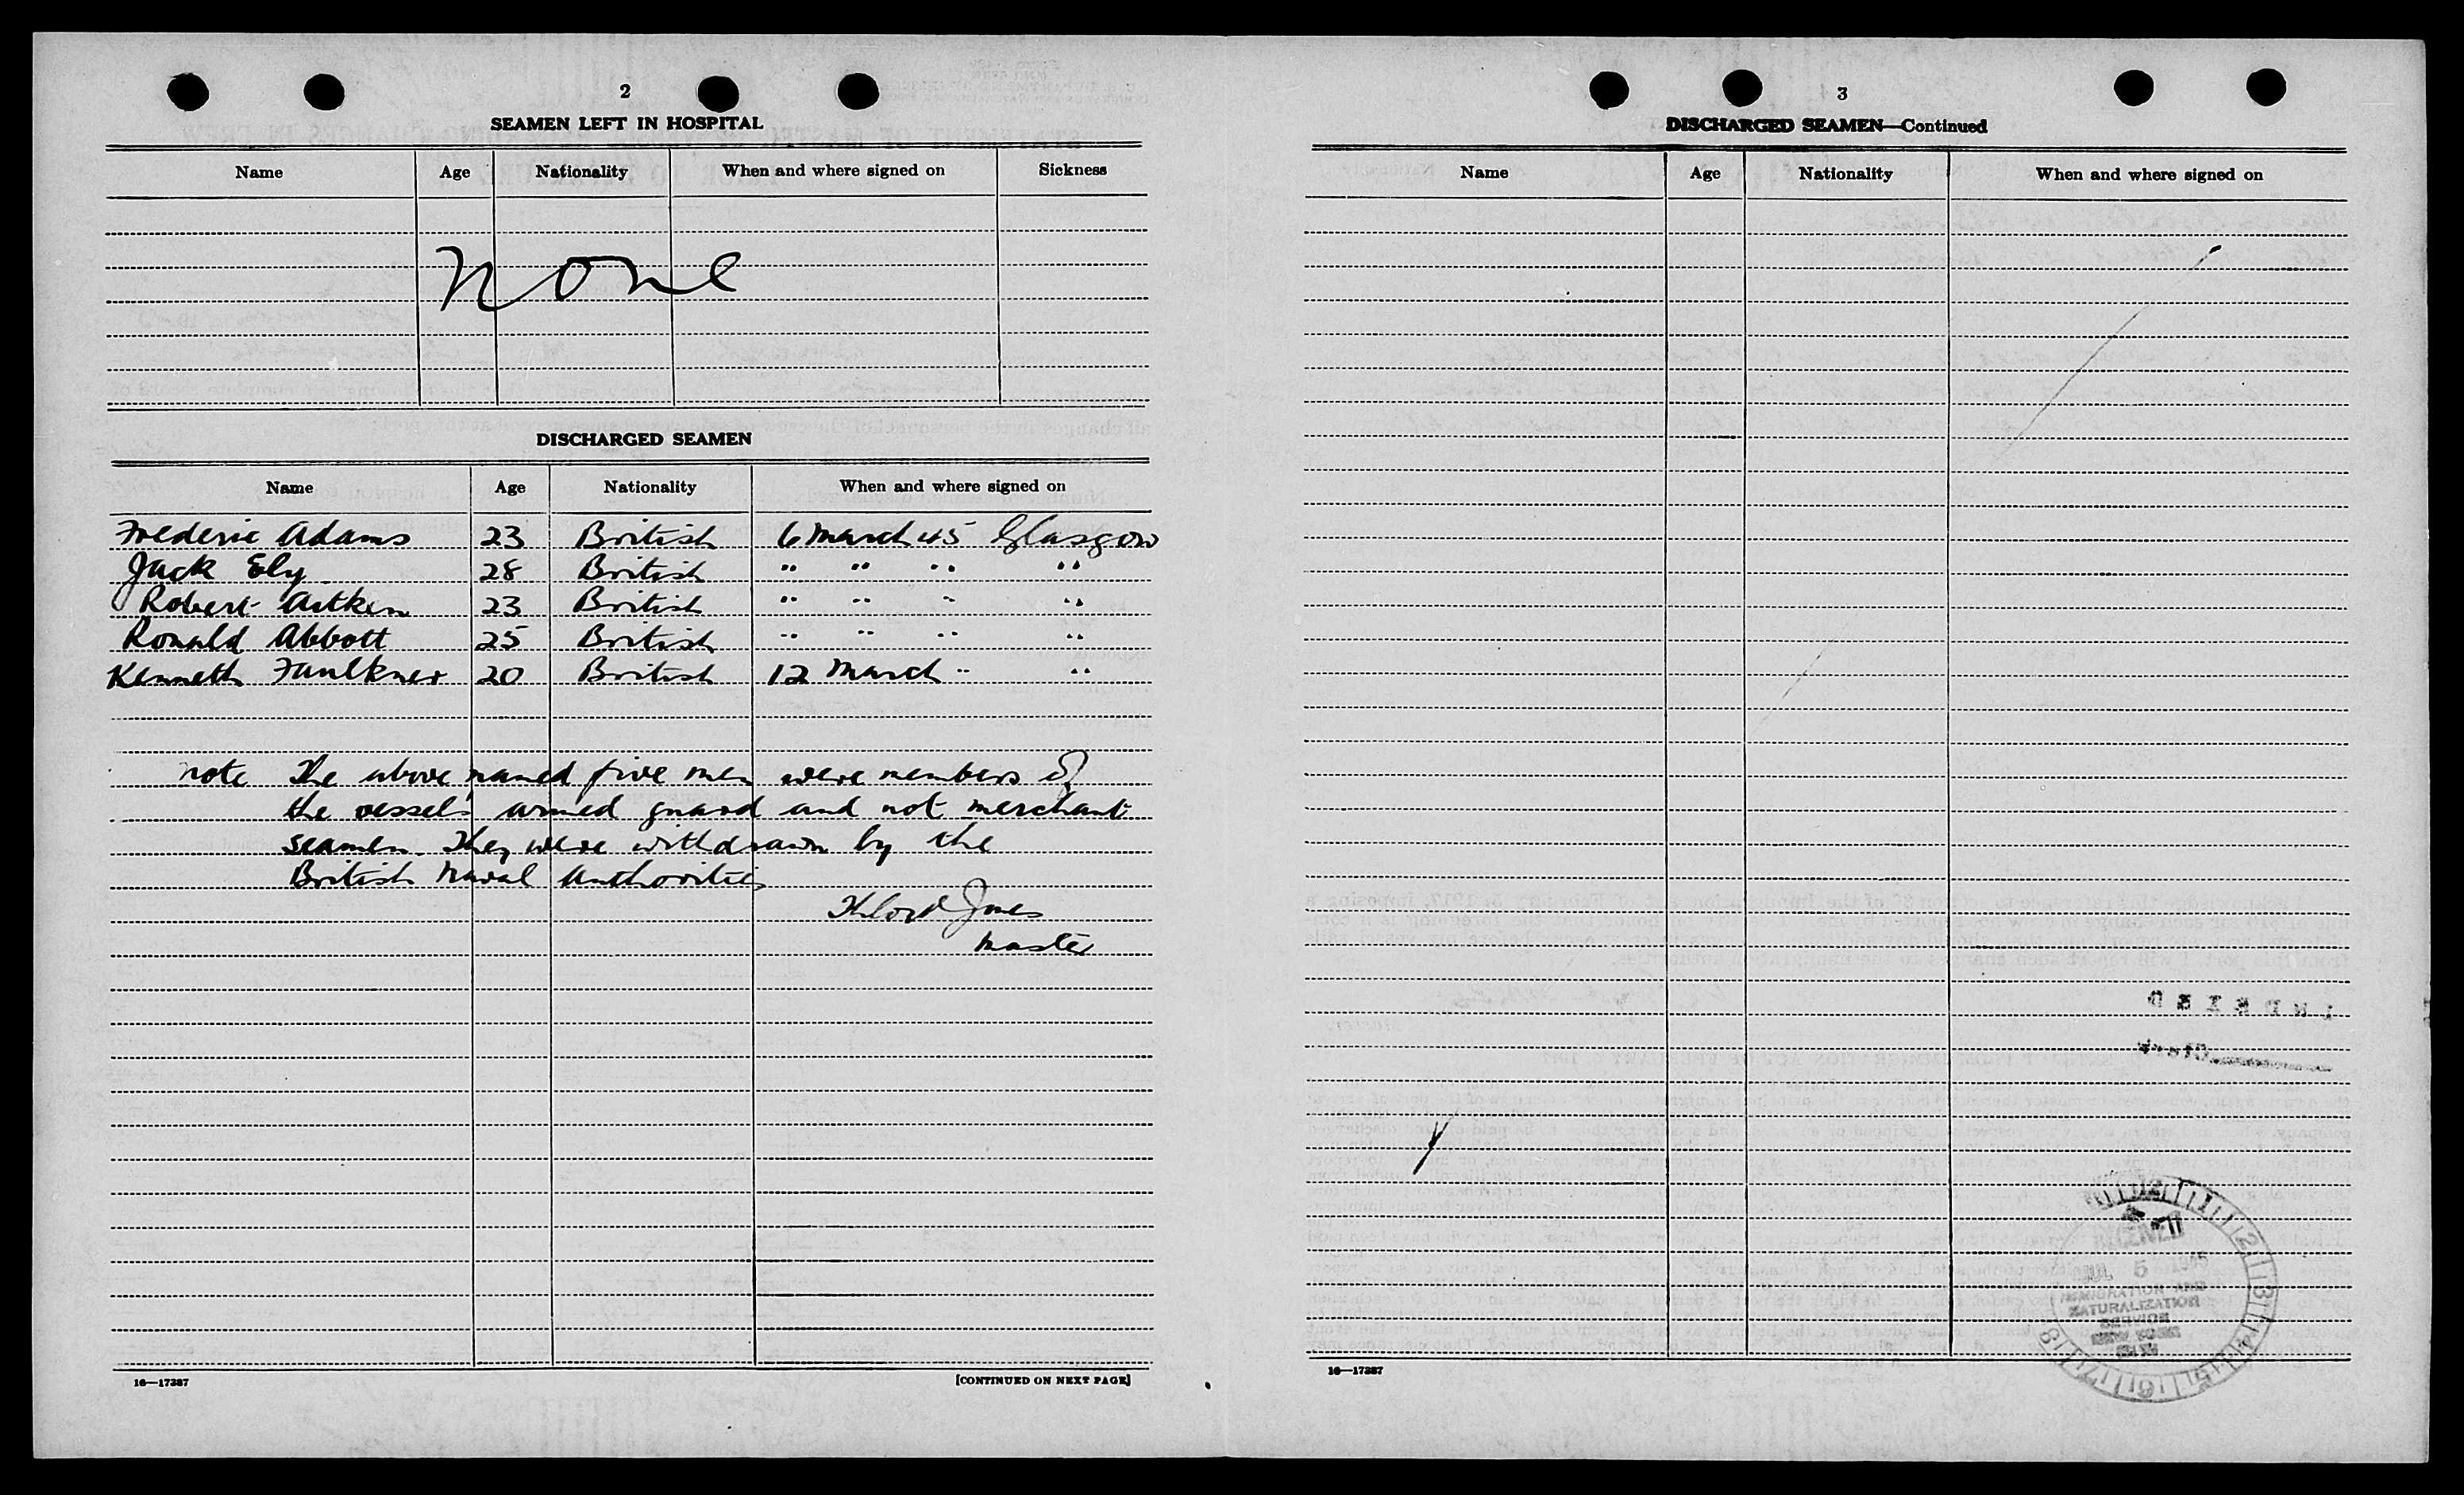 2
SEAMEN LEFT IN HOSPITAL
Name Age Nationality When and where signed on Sickness
None
DISCHARGED SEAMEN
Name Age Nationality When and where signed on
Frederic Adams 23 British 6 March 45 Glasgow
Jack Ely 28 British " " " "
Robert Aitken 23 British " " " "
Ronald Abbott 25 British " " " "
Kenneth Faulkner 20 British 12 March " "
note The above named five men were members of
the vessel's armed guard and not merchant
seamen. They were withdrawn by the
British Naval Authorities
Jones
Master
16—17387
[CONTINUED ON NEXT PAGE]
3
DISCHARGED SEAMEN—Continued
Name Age Nationality When and where signed on
INDEXED
Clerk
12 1 2 3 4 5 6 7 8
RECEIVED
JUL 5 1945
IMMIGRATION AND
NATURALIZATION
SERVICE
NEW YORK
16—17387